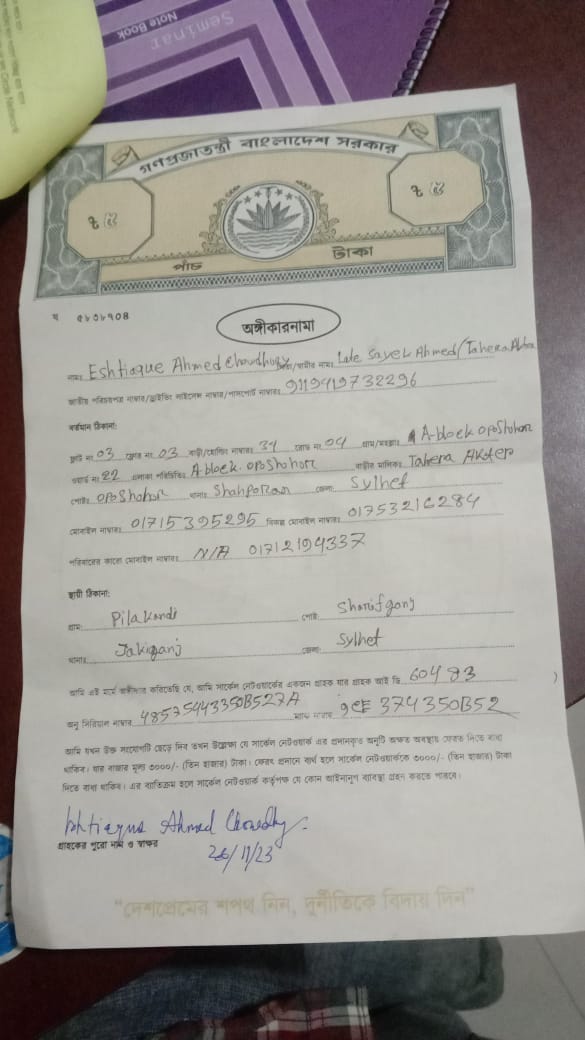 Seminar
Note Book
গণপ্রজাতন্ত্রী বাংলাদেশ সরকার
৫ ৫
পাঁচ টাকা
অঙ্গীকারনামা
নামঃ Eshtiaque Ahmed Chowdhury পিতা/স্বামীর নামঃ Late Sayek Ahmed/Tahera Akter
জাতীয় পরিচয়পত্র নাম্বার/ড্রাইভিং লাইসেন্স নাম্বার/পাসপোর্ট নাম্বারঃ 9119419732296
বর্তমান ঠিকানা:
ফ্লাট নং 03 ফ্লোর নং 03 বাড়ী/হোল্ডিং নাম্বারঃ 34 রোড নং 04 গ্রাম/মহল্লাঃ A-block oposhohor
ওয়ার্ড নং 22 এলাকা পরিচিতিঃ A block. oposhohor বাড়ীর মালিকঃ Tahera Akter
পোষ্টঃ oposhohor থানাঃ Shahporan জেলাঃ Sylhet
মোবাইল নাম্বারঃ 01715395295 বিকল্প মোবাইল নাম্বারঃ 01753216284
পরিবারের কারো মোবাইল নাম্বারঃ N/A 01712194337
স্থায়ী ঠিকানা:
গ্রামঃ Pilakandi পোষ্টঃ Sharifgonj
থানাঃ Jakiganj জেলাঃ Sylhet
আমি এই মর্মে অঙ্গীকার করিতেছি যে, আমি সার্কেল নেটওয়ার্কের একজন গ্রাহক যার গ্রাহক আই ডি 60483
অনু সিরিয়াল নাম্বার 48575443350B527A ম্যাক নাম্বার 9CE 374350B52
আমি যখন উক্ত সংযোগটি ছেড়ে দিব তখন উল্লেক্ষ্য যে সার্কেল নেটওয়ার্ক এর প্রদানকৃত অনুটি অক্ষত অবস্থায় ফেরত দিতে বাধ্য
থাকিব। যার বাজার মূল্য ৩০০০/- (তিন হাজার) টাকা। ফেরৎ প্রদানে ব্যর্থ হলে সার্কেল নেটওয়ার্ককে ৩০০০/- (তিন হাজার) টাকা
দিতে বাধ্য থাকিব। এর ব্যতিক্রম হলে সার্কেল নেটওয়ার্ক কর্তৃপক্ষ যে কোন আইনানুগ ব্যবস্থা গ্রহন করতে পারবে।
Ishtiaque Ahmed Chowdhy.
গ্রাহকের পুরো নাম ও স্বাক্ষর
26/11/23
"দেশপ্রেমের শপথ নিন, দুর্নীতিকে বিদায় দিন"